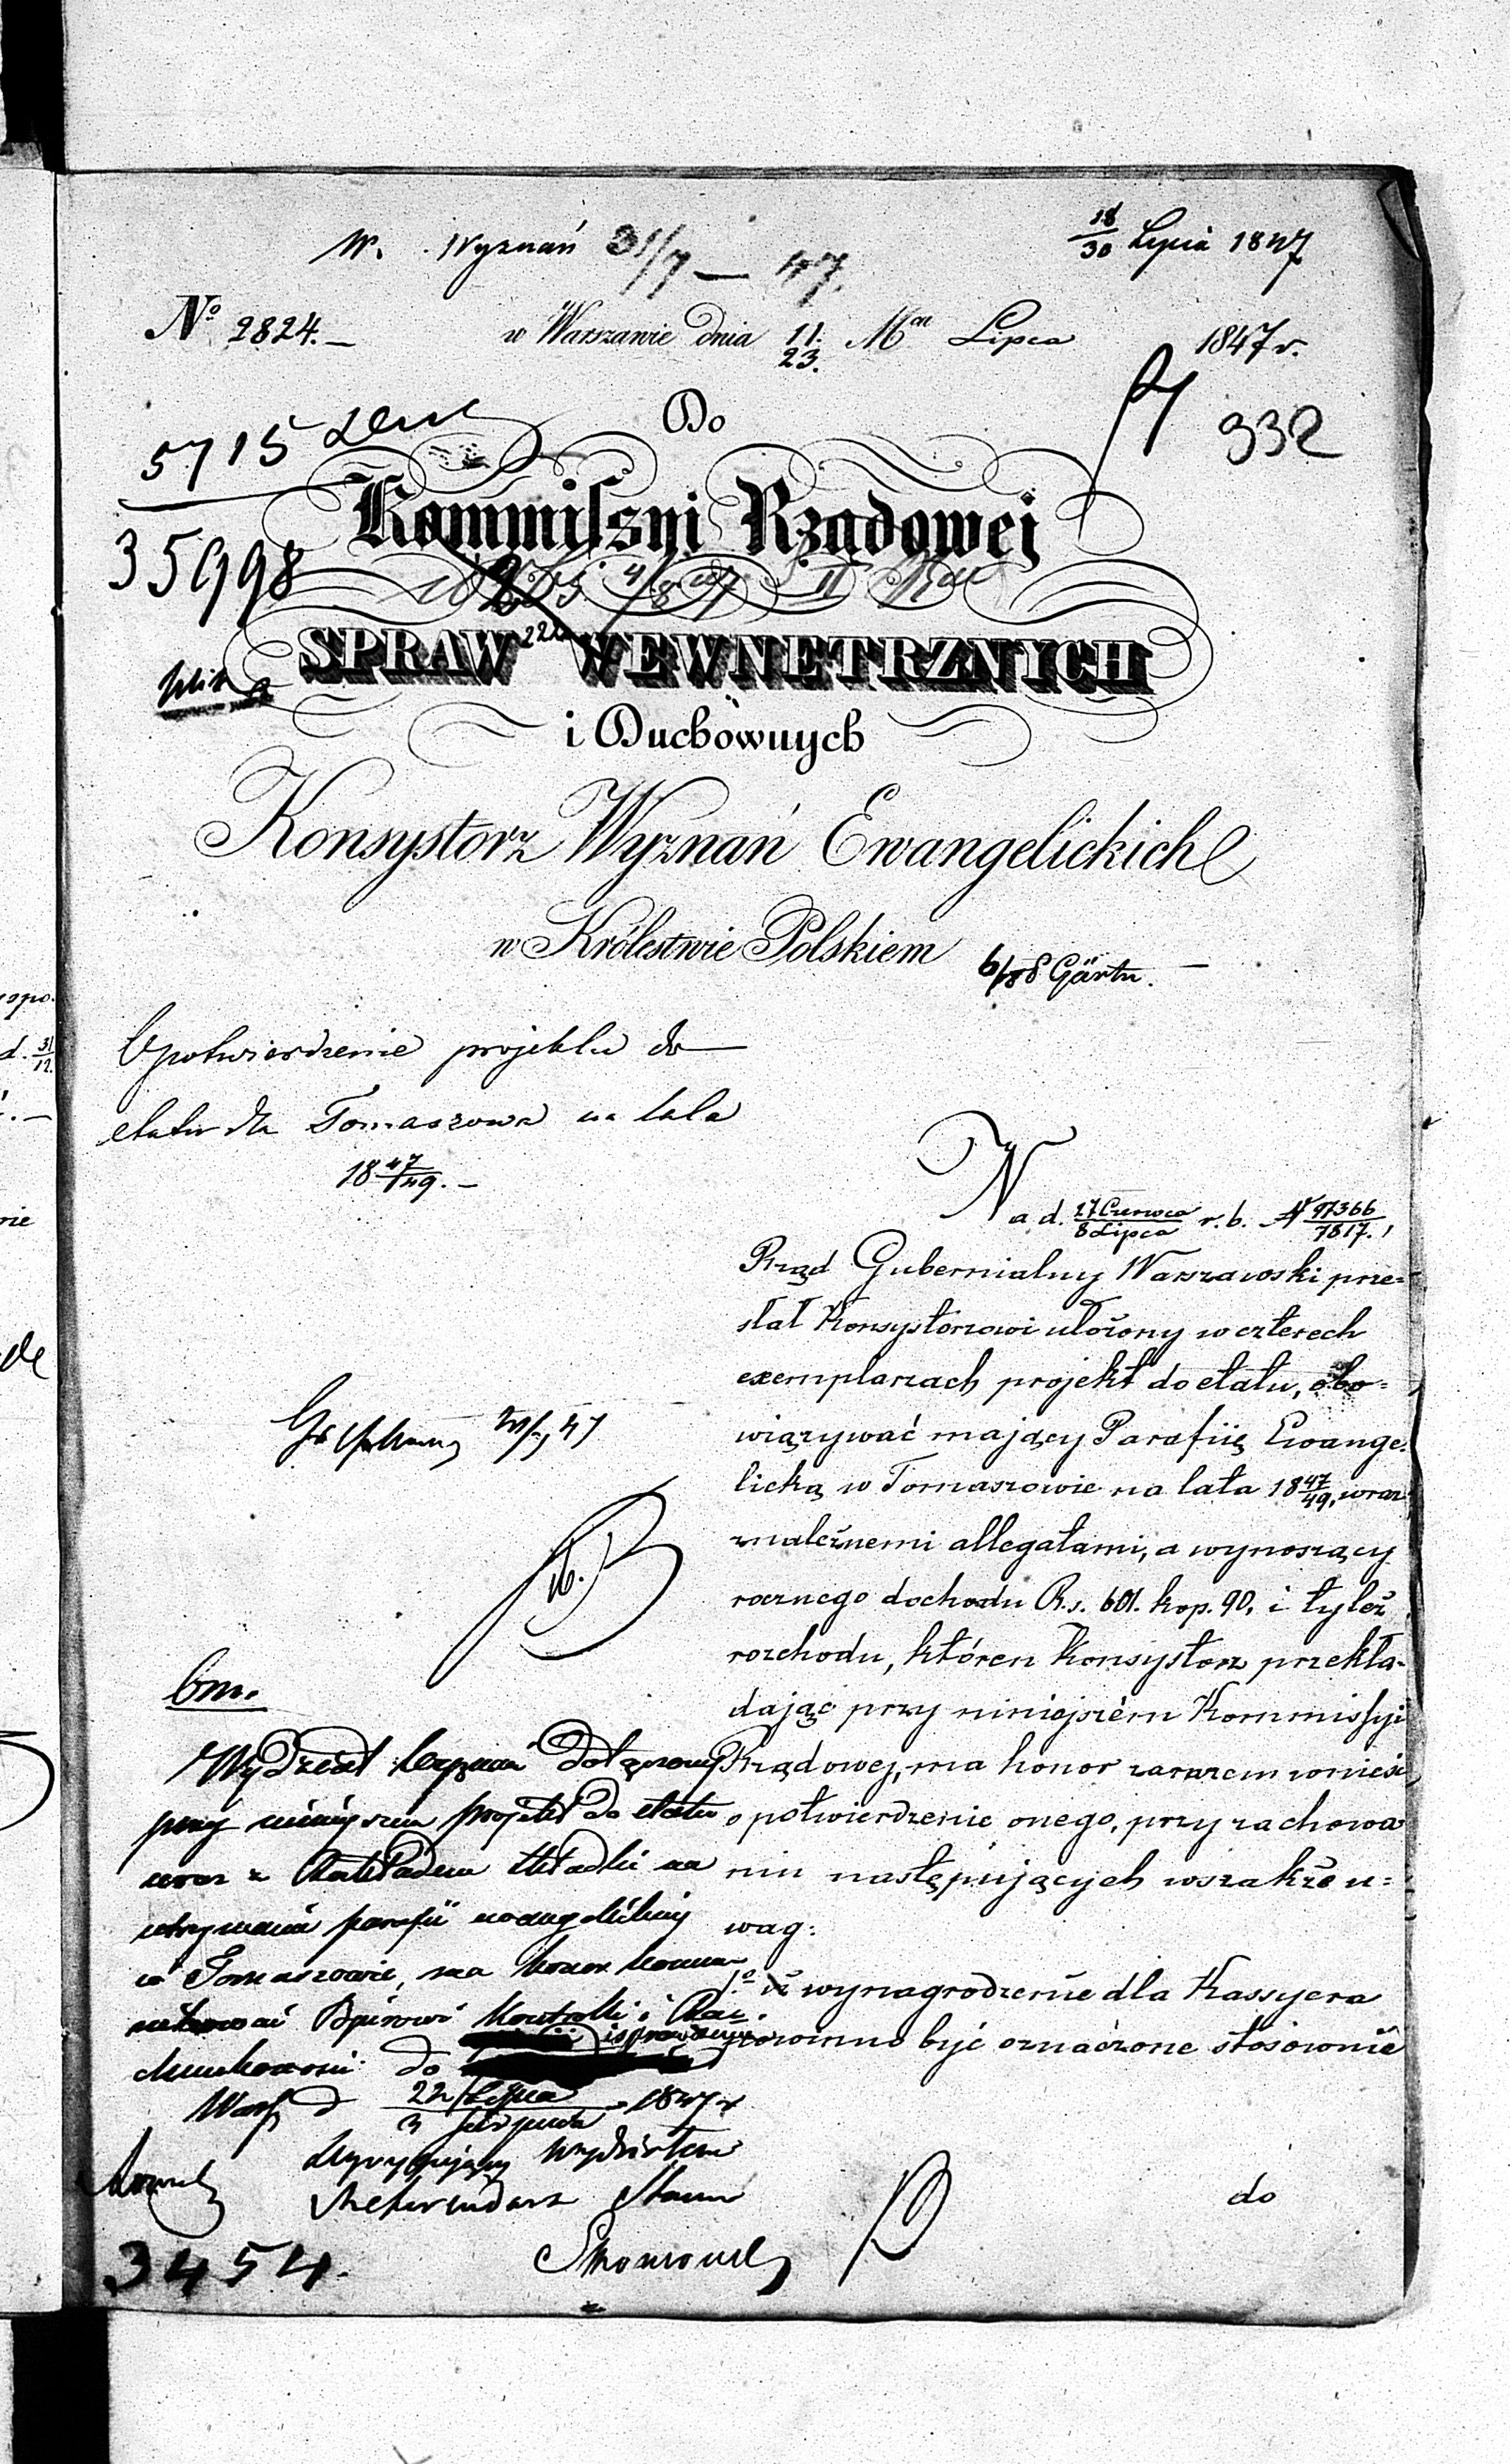 W. Wyznań 31/7 — 47.
18/30 Lipca 1847
No 2824. —
w Warszawie dnia 11./23. Mca Lipca 1847 r.
Do
332
5715
35998
Kommissyi Rządowej
SPRAW WEWNETRZNYCH
i Duchównych
Konsystorz Wyznań Ewangelickich
w Królestwie Polskiem
O potwierdzenie projektu do
etatu dla Tomaszowa na lata
18 47/49. —
Na d. 27 Czerwca/8 Lipca r. b. N 97366/7817.,
Rząd Gubernialny Warszawski prze=
słał Konsystorzowi ułożony w czterech
exemplarzach projekt do etatu, obo=
wiązywać mający Parafiię Ewange=
licką w Tomaszowie na lata 18 47/49, wraz
z należnemi allegatami, a wynoszący
rocznego dochodu R.s. 601. kop. 90, i tyleż
rozchodu, któren Konsystorz przekła-
dając przy niniejszém Kommissyi
Rządowej, ma honor zarazem wnieść
o potwierdzenie onego, przy zachowa
niu następujących wszakże u=
wag:
1.o iż wynagrodzenie dla Kassyera
powinno być oznaczone stosownie
do
bm.
Wydział Wyznań dołączony
przy niniejszem projekt do etatu
wraz z rozkładem składki na
utrzymanie parafii ewangelickiej
w Tomaszowie, ma honor komu-
nikować Biurowi Kontrolli i Ra-
chunkowości do sprawdzenia
Warsz d 22 Lipca/3 Sierpnia 1847 r
Dyrygujący Wydziałem
Referendarz Stanu
3454.